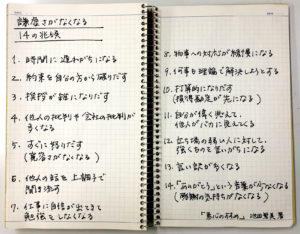 謙虚さがなくなる
14の兆候
1. 時間に遅れがちになる
2. 約束を自分の方から破りだす
3. 挨拶が雑になりだす
4. 他人の批判や会社の批判が
多くなる
5. すぐに怒りだす
(寛容さがなくなる)
6. 他人の話を上調子で
聞き流す
7. 仕事に自信が出てきて
勉強をしなくなる
8. 物事への対応が緩慢になる
9. 何事も理論で解決しようとする
10. 打算的になりだす
(損得勘定が先になる)
11. 自分が偉く思えて、
他人がバカに見えてくる
12. 立場の弱い人に対して、
横柄な言い方になる
13. 言い訳が多くなる
14. 「ありがとう」という言葉がなくなる
(感謝の気持ちがなくなる)